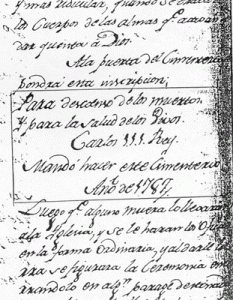 los Cuerpos de las almas q.e
dar quenta à Dios.
Ala puerta del Cimenterio
pondra esta inscripcion,
Para descanso de los muertos
Y para la Salud de los Vivos.
Carlos III. Rey.
Mandó hacer este Cimenterio
Año de 1787.
Luego q.e alguno muera lo llevaran
ala Iglesia, y se le haran los
en la forma Ordinaria, y al darle
rra se figurara la Ceremonia
en alg.n parage